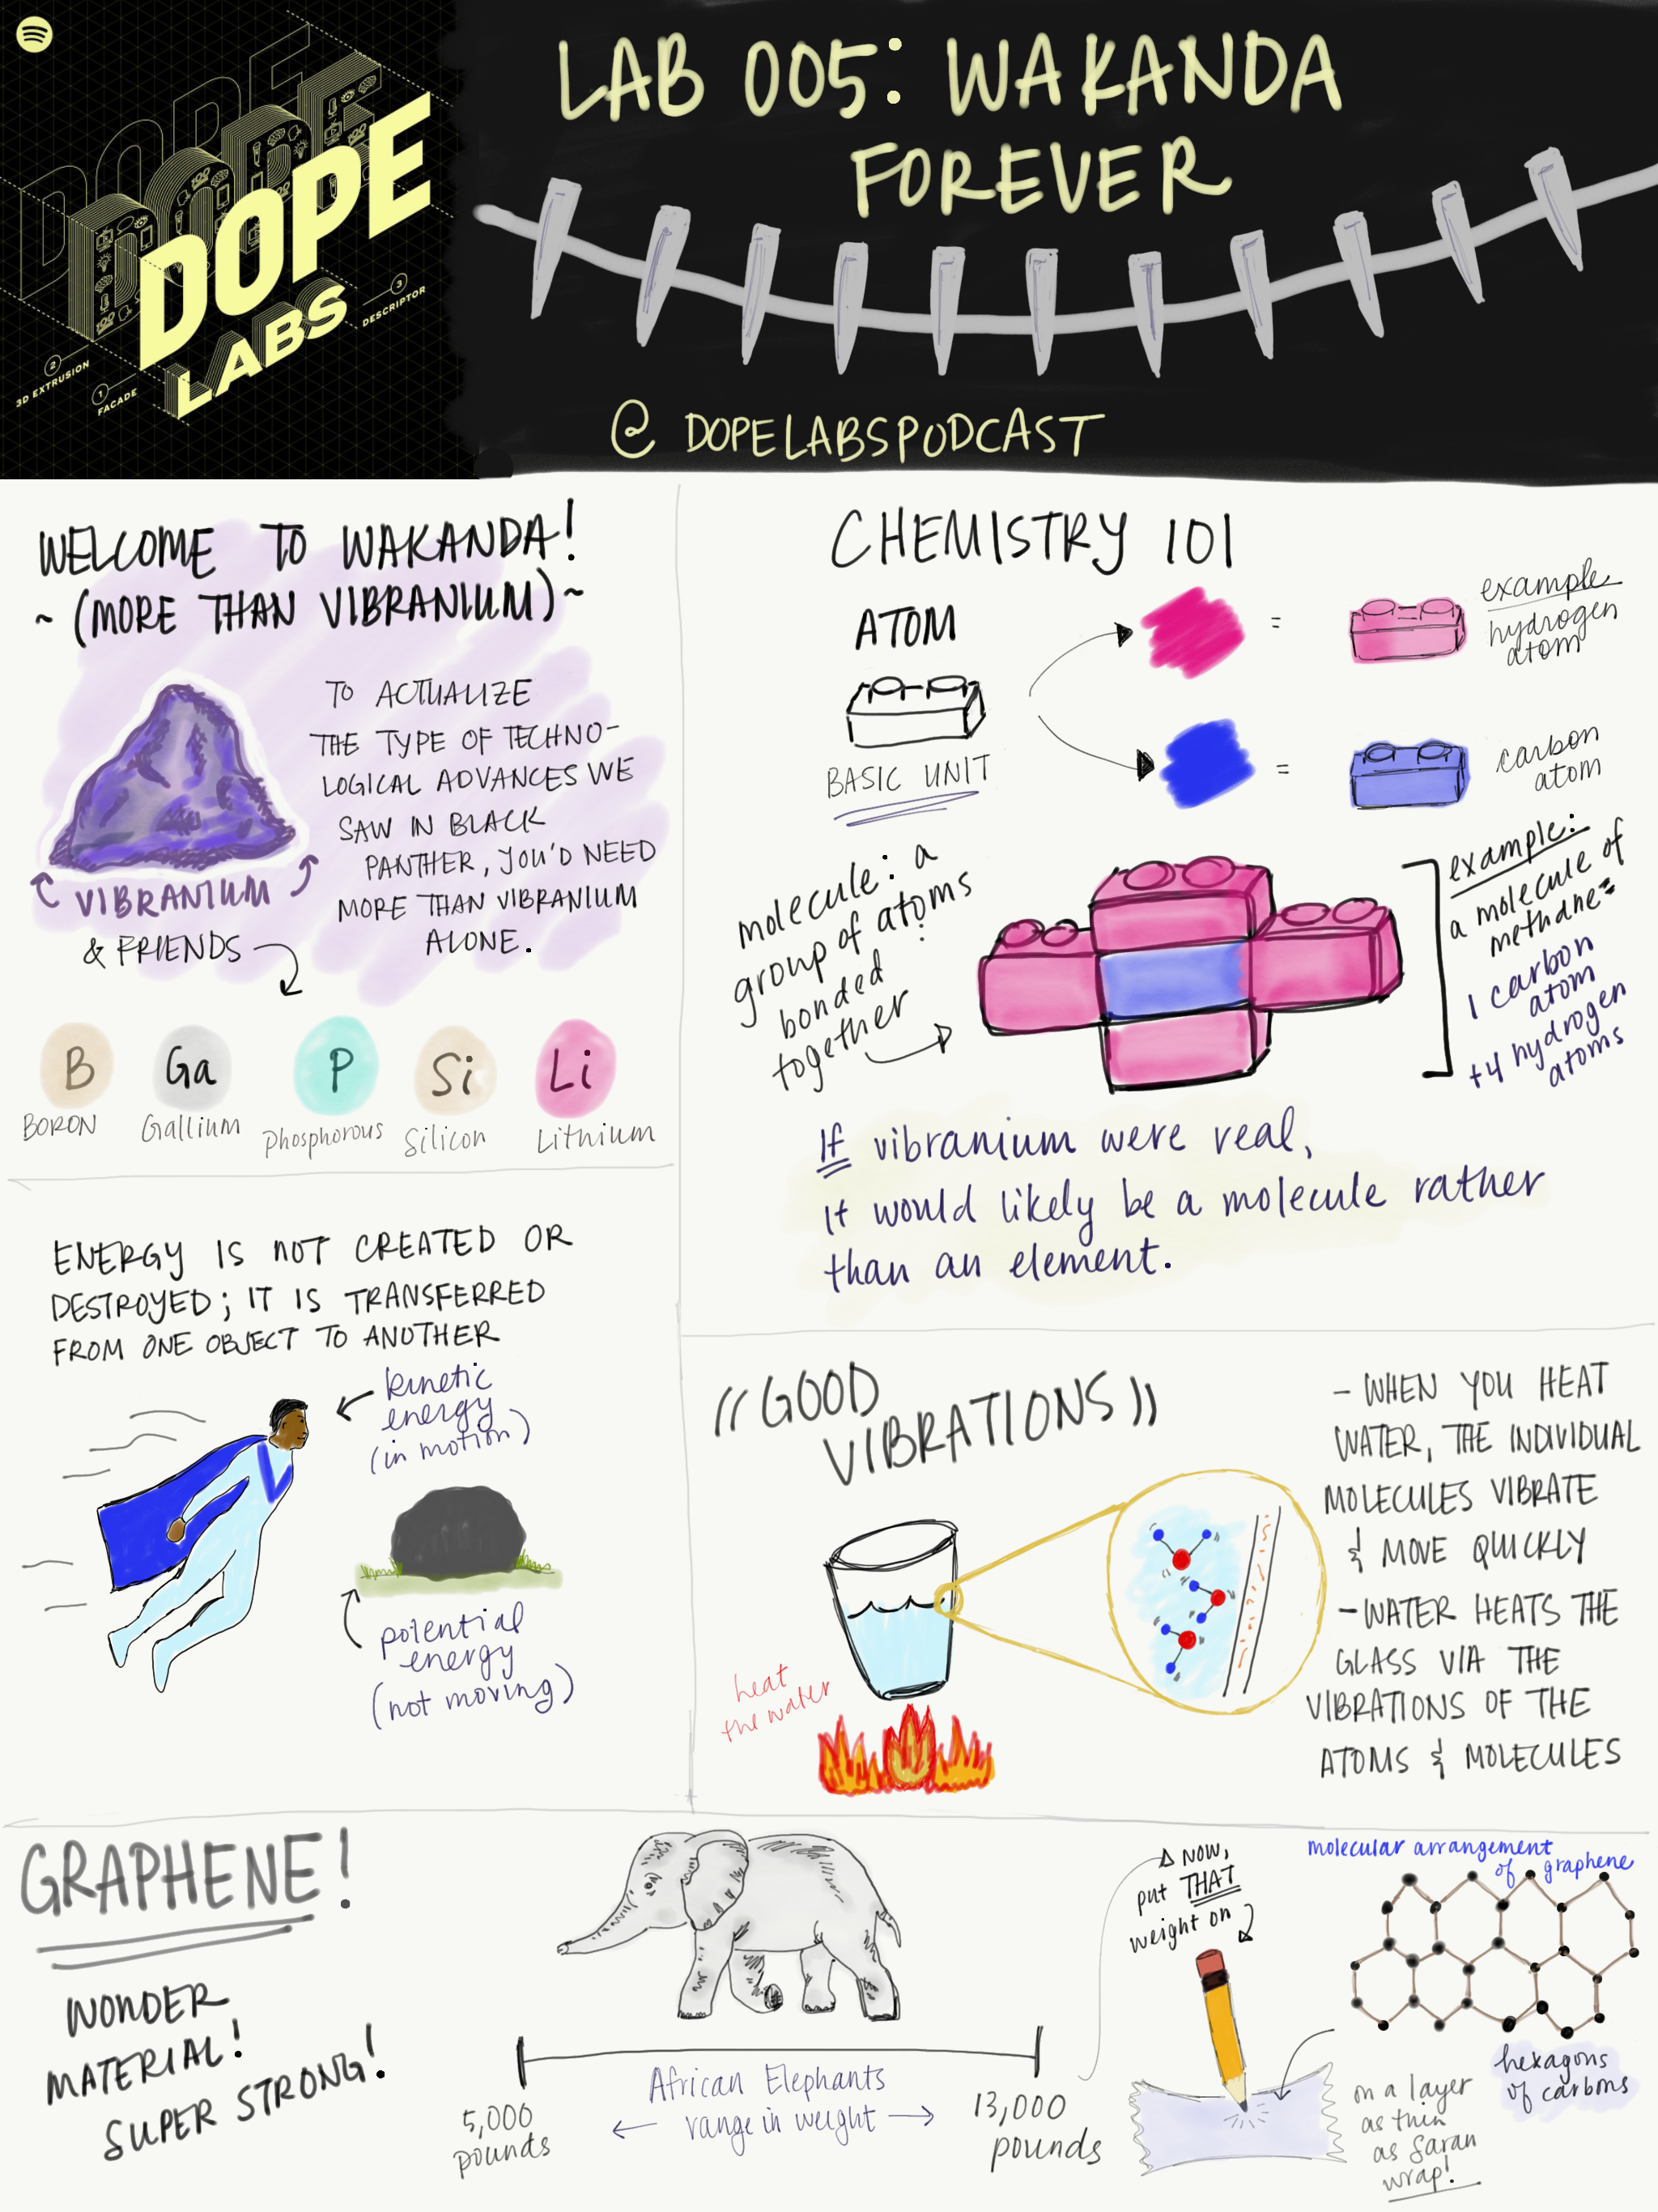 DOPE
LABS
2
3D EXTRUSION
1
FACADE
3
DESCRIPTOR
LAB 005: WAKANDA
FOREVER
@ DOPELABSPODCAST
WELCOME TO WAKANDA!
~ (MORE THAN VIBRANIUM) ~
TO ACTUALIZE
THE TYPE OF TECHNO-
LOGICAL ADVANCES WE
SAW IN BLACK
PANTHER, YOU'D NEED
MORE THAN VIBRANIUM
ALONE.
VIBRANIUM
& FRIENDS
B
Ga
P
Si
Li
BORON
Gallium
Phosphorous
Silicon
Lithium
CHEMISTRY 101
ATOM
BASIC UNIT
=
example
hydrogen
atom
=
carbon
atom
molecule: a
group of atoms
bonded
together
example:
a molecule of
methane=
1 carbon
atom
+4 hydrogen
atoms
If vibranium were real,
it would likely be a molecule rather
than an element.
ENERGY IS NOT CREATED OR
DESTROYED; IT IS TRANSFERRED
FROM ONE OBJECT TO ANOTHER
kinetic
energy
(in motion)
potential
energy
(not moving)
((GOOD
VIBRATIONS))
heat
the water
- WHEN YOU HEAT
WATER, THE INDIVIDUAL
MOLECULES VIBRATE
& MOVE QUICKLY
- WATER HEATS THE
GLASS VIA THE
VIBRATIONS OF THE
ATOMS & MOLECULES
GRAPHENE!
WONDER
MATERIAL!
SUPER STRONG!
5,000
pounds
African Elephants
range in weight
13,000
pounds
NOW,
put THAT
weight on
molecular arrangement
of graphene
hexagons
of carbons
on a layer
as thin
as Saran
wrap!